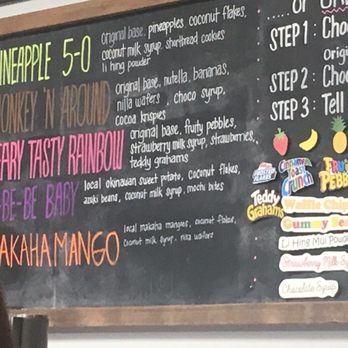 INEAPPLE 5-0
original base, pineapples, coconut flakes,
coconut milk syrup, shortbread cookies
li hing powder
ONKEY 'N AROUND
original base, nutella, bananas,
nilla wafers, choco syrup,
cocoa krispies
TARY TASTY RAINBOW
original base, fruity pebbles,
strawberry milk syrup, strawberries,
teddy grahams
-BE-BE BABY
local okinawan sweet potato, coconut flakes,
azuki beans, coconut milk syrup, mochi bites
AKAHA MANGO
local makaha mangoes, coconut flakes,
coconut milk syrup, nilla wafers
... or
STEP 1: Cho
Origi
STEP 2: Choo
STEP 3: Tell
Cinnamon Toast Crunch
PEBBL
Teddy Grahams
Waffle Chip
Gummy Bear
Li Hing Mui Powd
Strawberry Milk S
Chocolate Syrup